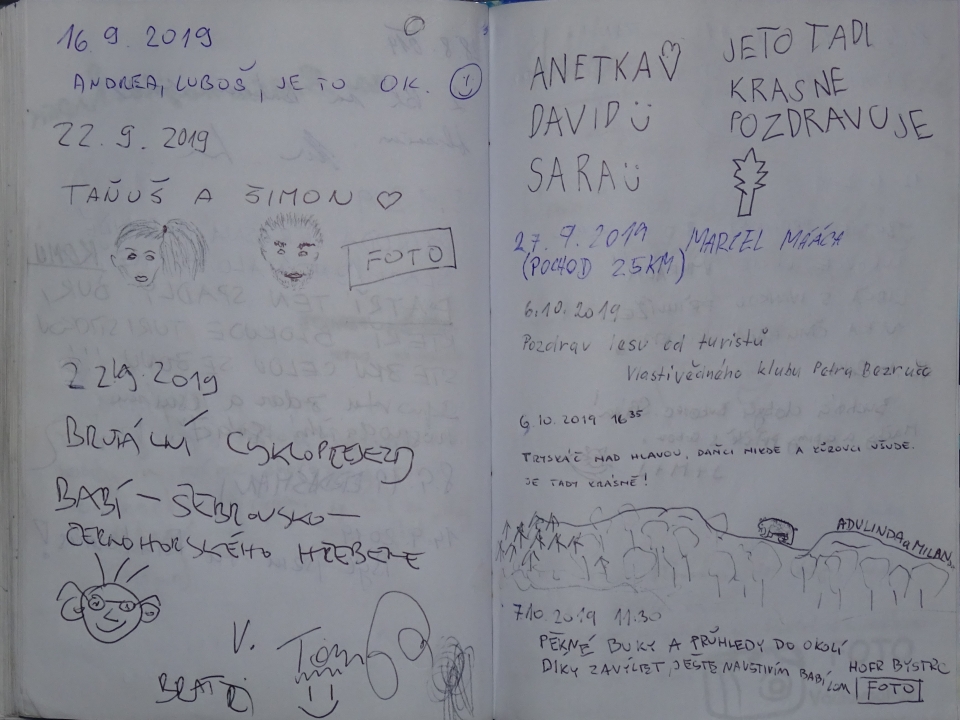 16.9.2019
ANDREA, LUBOŠ, JE TO OK.
22.9.2019
TAŇUŠ A ŠIMON
FOTO
22.9.2019
BRUTÁLNÍ CYKLOPŘEJEZD
BABÍ – ŠEBROVSKO –
ČERNOHORSKÉHO HŘEBENE
V.
BRATŘI
ANETKA
DAVID
SARA
JETO TADI
KRASNE
POZDRAVUJE
27.9.2019 MARCEL
(POCHOD 25KM)
6.10.2019
Pozdrav lesu od turistů
Vlastivědného klubu Petra Bezruče
6.10.2019 16 35
TRYSKÁČ NAD HLAVOU, DAŇCI NIKDE A VŠUDE.
JE TADY KRÁSNĚ!
ADULINDA a MILAN
7.10.2019 11.30
PĚKNÉ BUKY A PRŮHLEDY DO OKOLÍ
DÍKY ZA VÝLET, JEŠTĚ NAVŠTÍVÍM BABÍ LOM
HOFR BYSTRC
FOTO